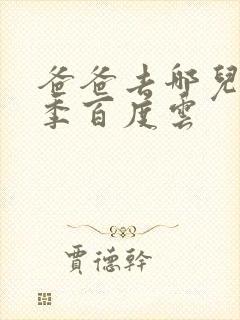 爸爸去哪兒
季百度雲
賈德幹